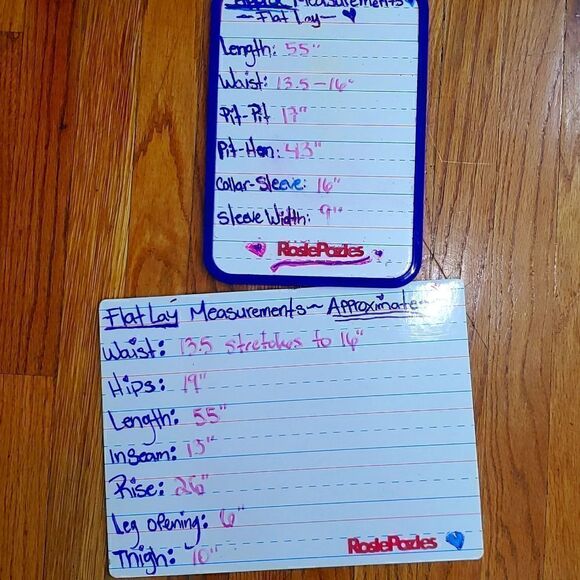 Measurements
~ Flat Lay ~
Length: 55"
Waist: 13.5-16"
Pit-Pit 17"
Pit-Hem: 43"
Collar-Sleeve: 16"
Sleeve Width: 9"
RosiePozies
Flat Lay Measurements ~ Approximate ~
Waist: 13.5 stretches to 16"
Hips: 19"
Length: 55"
Inseam: 13"
Rise: 26"
Leg opening: 6"
Thigh: 10"
RosiePozies